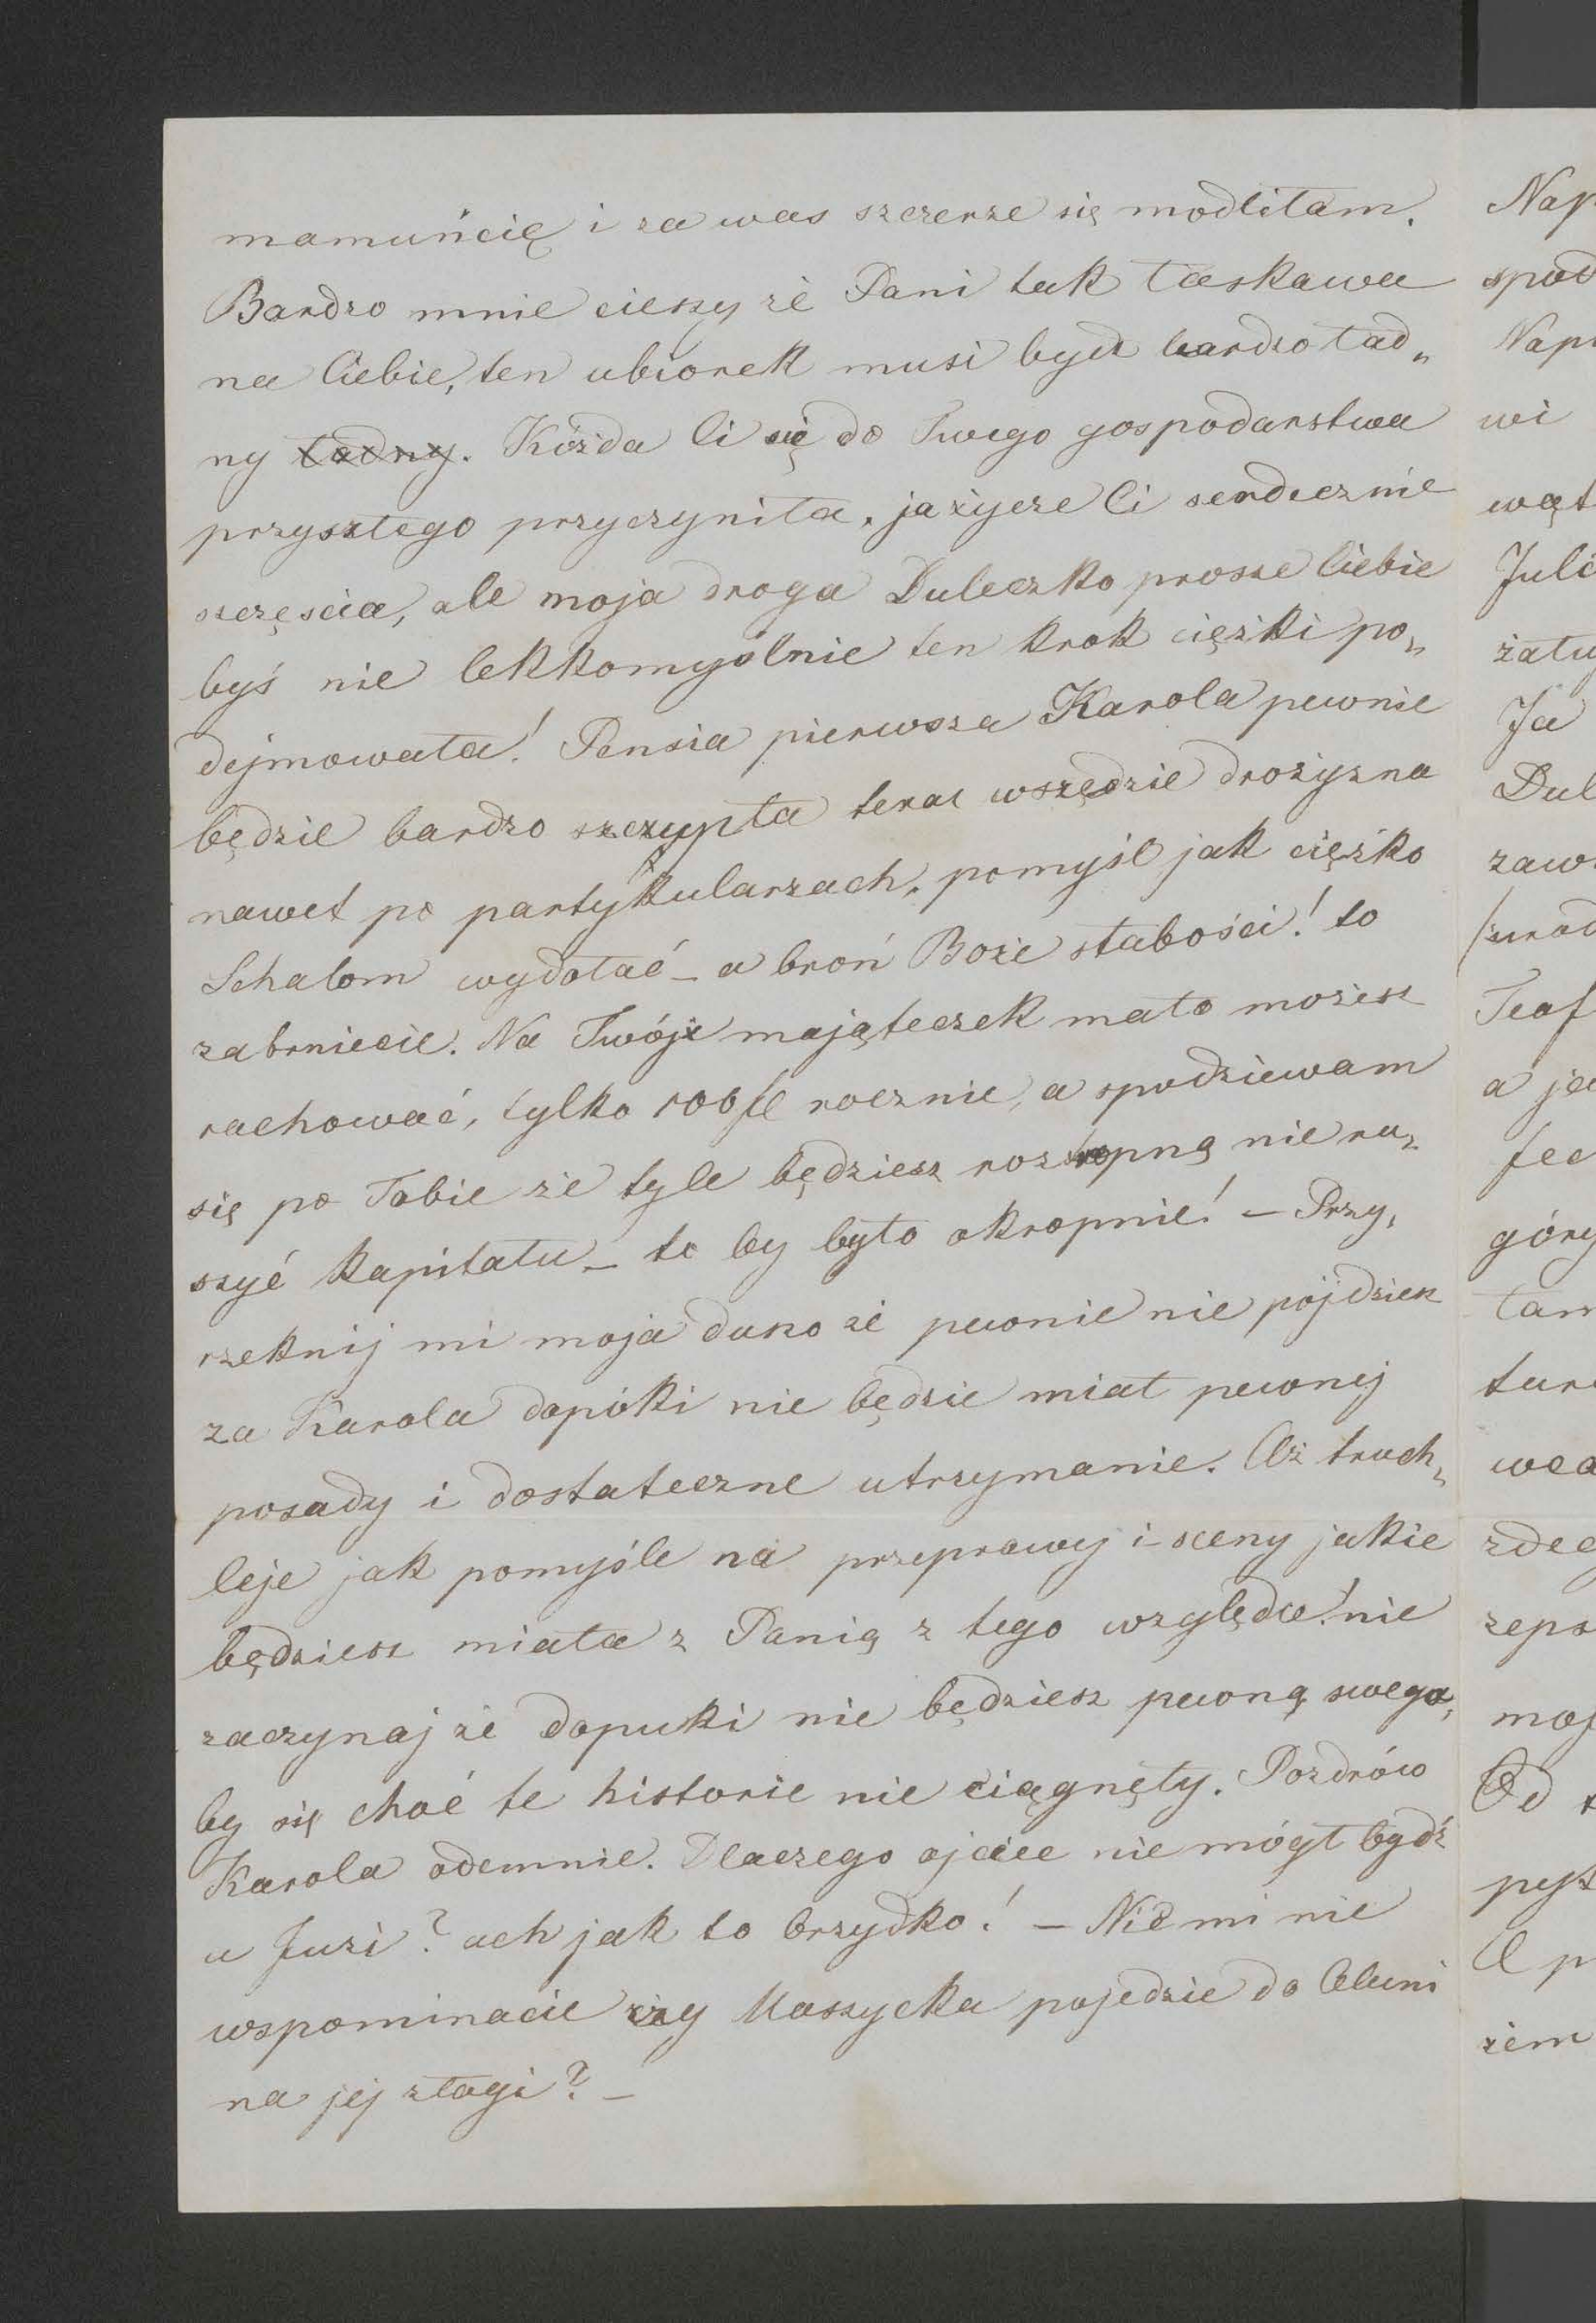 mamuńcię i za was szczerze się modliłam.
Bardzo mnie cieszy że Pani tak łaskawa
na Ciebie, ten ubiorek musi bydź bardzo ład„
ny ładny. Kóżda Ci się do Twego gospodarstwa
przyszłego przyczyniła, ja życze Ci serdecznie
szczęscia, ale moja droga Duleczko prosze Ciebie
byś nie lekkomyślnie ten krok ciężki po„
dejmowała! Pensia pierwsza Karola pewnie
będzie bardzo szczupła teraz wszędzie drożyzna
nawet po partykularzach, pomyśl jak ciężko
Schalom wydołać – a broń Boże słabości! to
zabrniecie. Na Twój mająteczek mało możesz
rachować, tylko 100 fl rocznie, a spodziewam
się po Tobie że tyle będziesz roztropną nie ru„
szyć kapitału – to by było okropnie! – Przy„
rzeknij mi moja duszo że pewnie nie pójdziesz
za Karola dopóki nie będzie miał pewnej
posady i dostateczne utrzymanie. Aż truch„
leje jak pomyśle na przeprawy i sceny jakie
będziesz miała z Panią z tego względu! nie
zaczynaj że dopuki nie będziesz pewną swego,
by się choć te historie nie ciągnęły. Pozdrów
Karola odemnie. Dlaczego ojciec nie mógł bydź
u Juzi? ach jak to brzydko! – Nic mi nie
wspominacie czy Maszycka pojedzie do Celuni
na jej złogi? –
Nap
spod
Nap
wi
wąt
Juli
żału
Ja
Dul
zaw
Teof
a je
fec
góry
tam
tur
wca
zde
zeps
moj
Od
pys
O p
żem